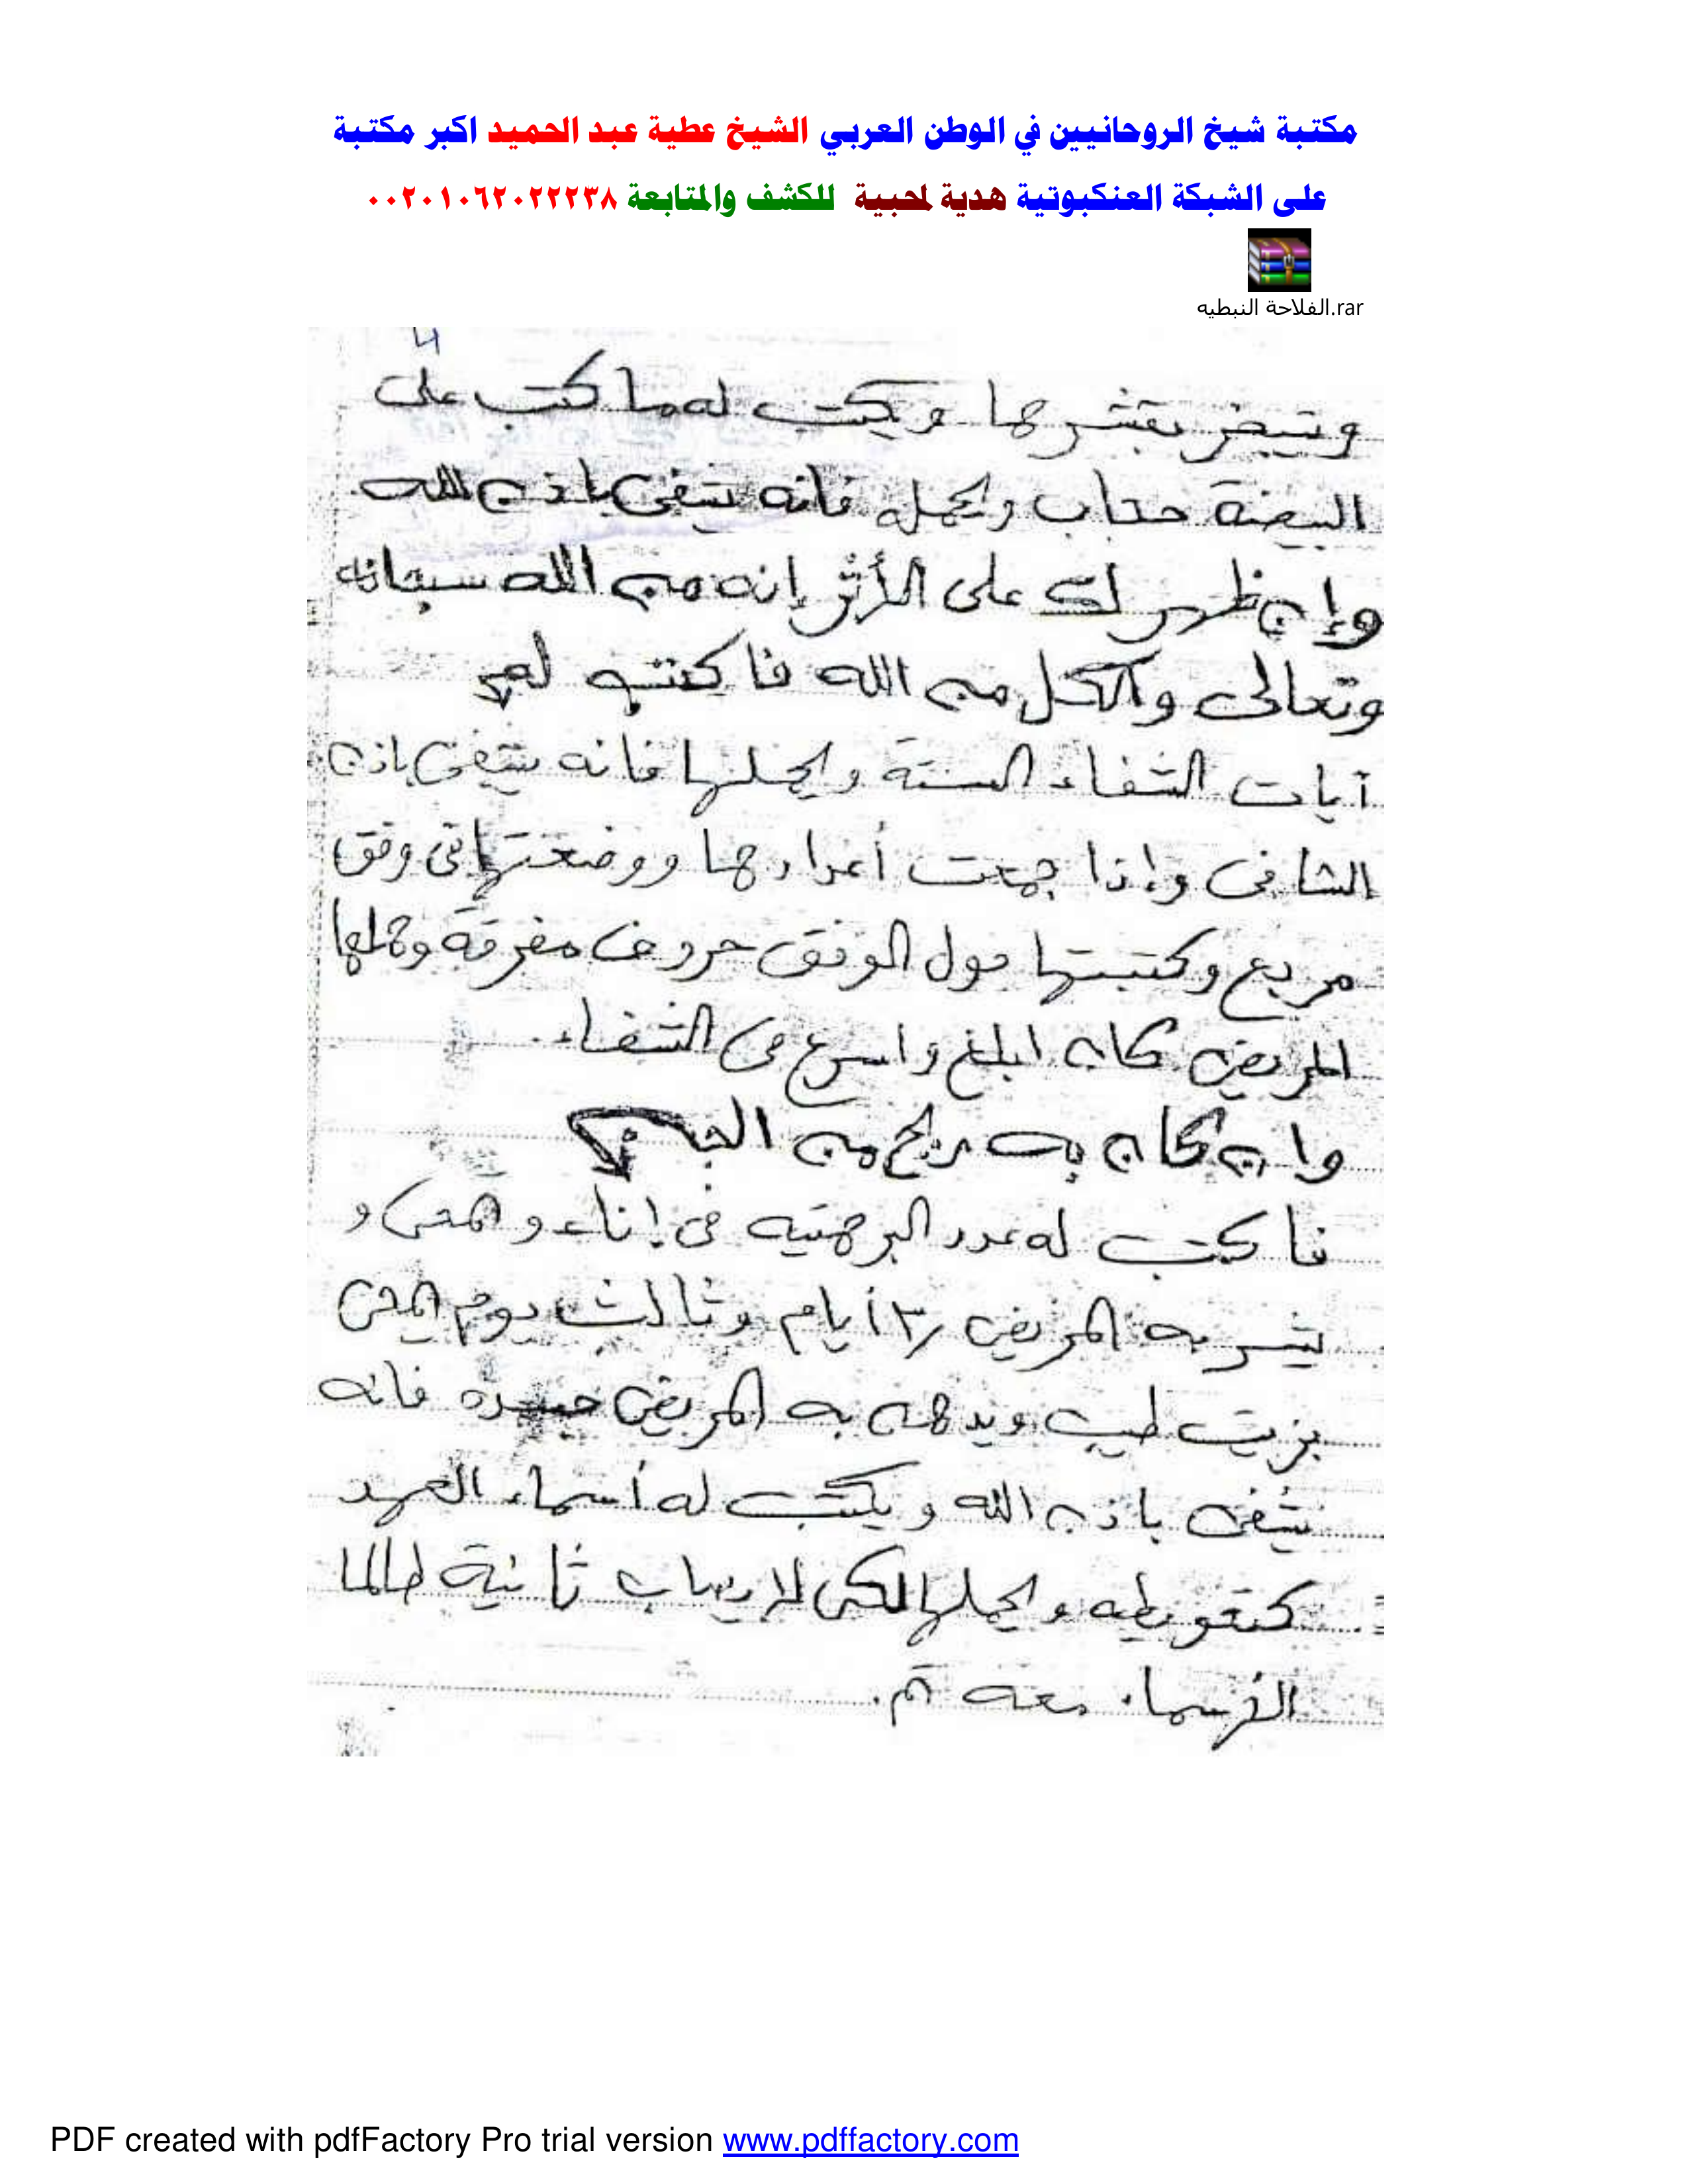 مكتبة شيخ الروحانيين في الوطن العربي الشيخ عطية عبد الحميد اكبر مكتبة
على الشبكة العنكبوتية هدية لمحبية للكشف والمتابعة ٠٠٢٠١٠٦٢٠٢٢٢٣٨
الفلاحة النبطيه.rar
وتبخر بقشرها ويكتب له ما كتب على
البيضة حجاب ويحمله فانه يشفى باذن الله
وإن ظهر لك على الأثر إنه من الله سبحانه
وتعالى والكل من الله فاكتب له
آيات الشفاء الستة ويحملها فانه يشفى باذن
الشافى وإذا جمعت أعدادها ووضعتها فى وفق
مربع وكتبتها حول الوفق حروف مفرقة وحملها
المريض كان ابلغ واسرع فى الشفاء.
وإن كان به ريح من
فاكتب له عدد البرهتيه فى إناء و و
يشربه المريض ٣ أيام وثالث يوم
بزيت طيب ويدهن به المريض جسده فانه
يشفى باذن الله ويكتب له أسماء العهد
ويحملها لكى لا يصاب ثانية طالما
الأسماء معه تم.
PDF created with pdfFactory Pro trial version www.pdffactory.com